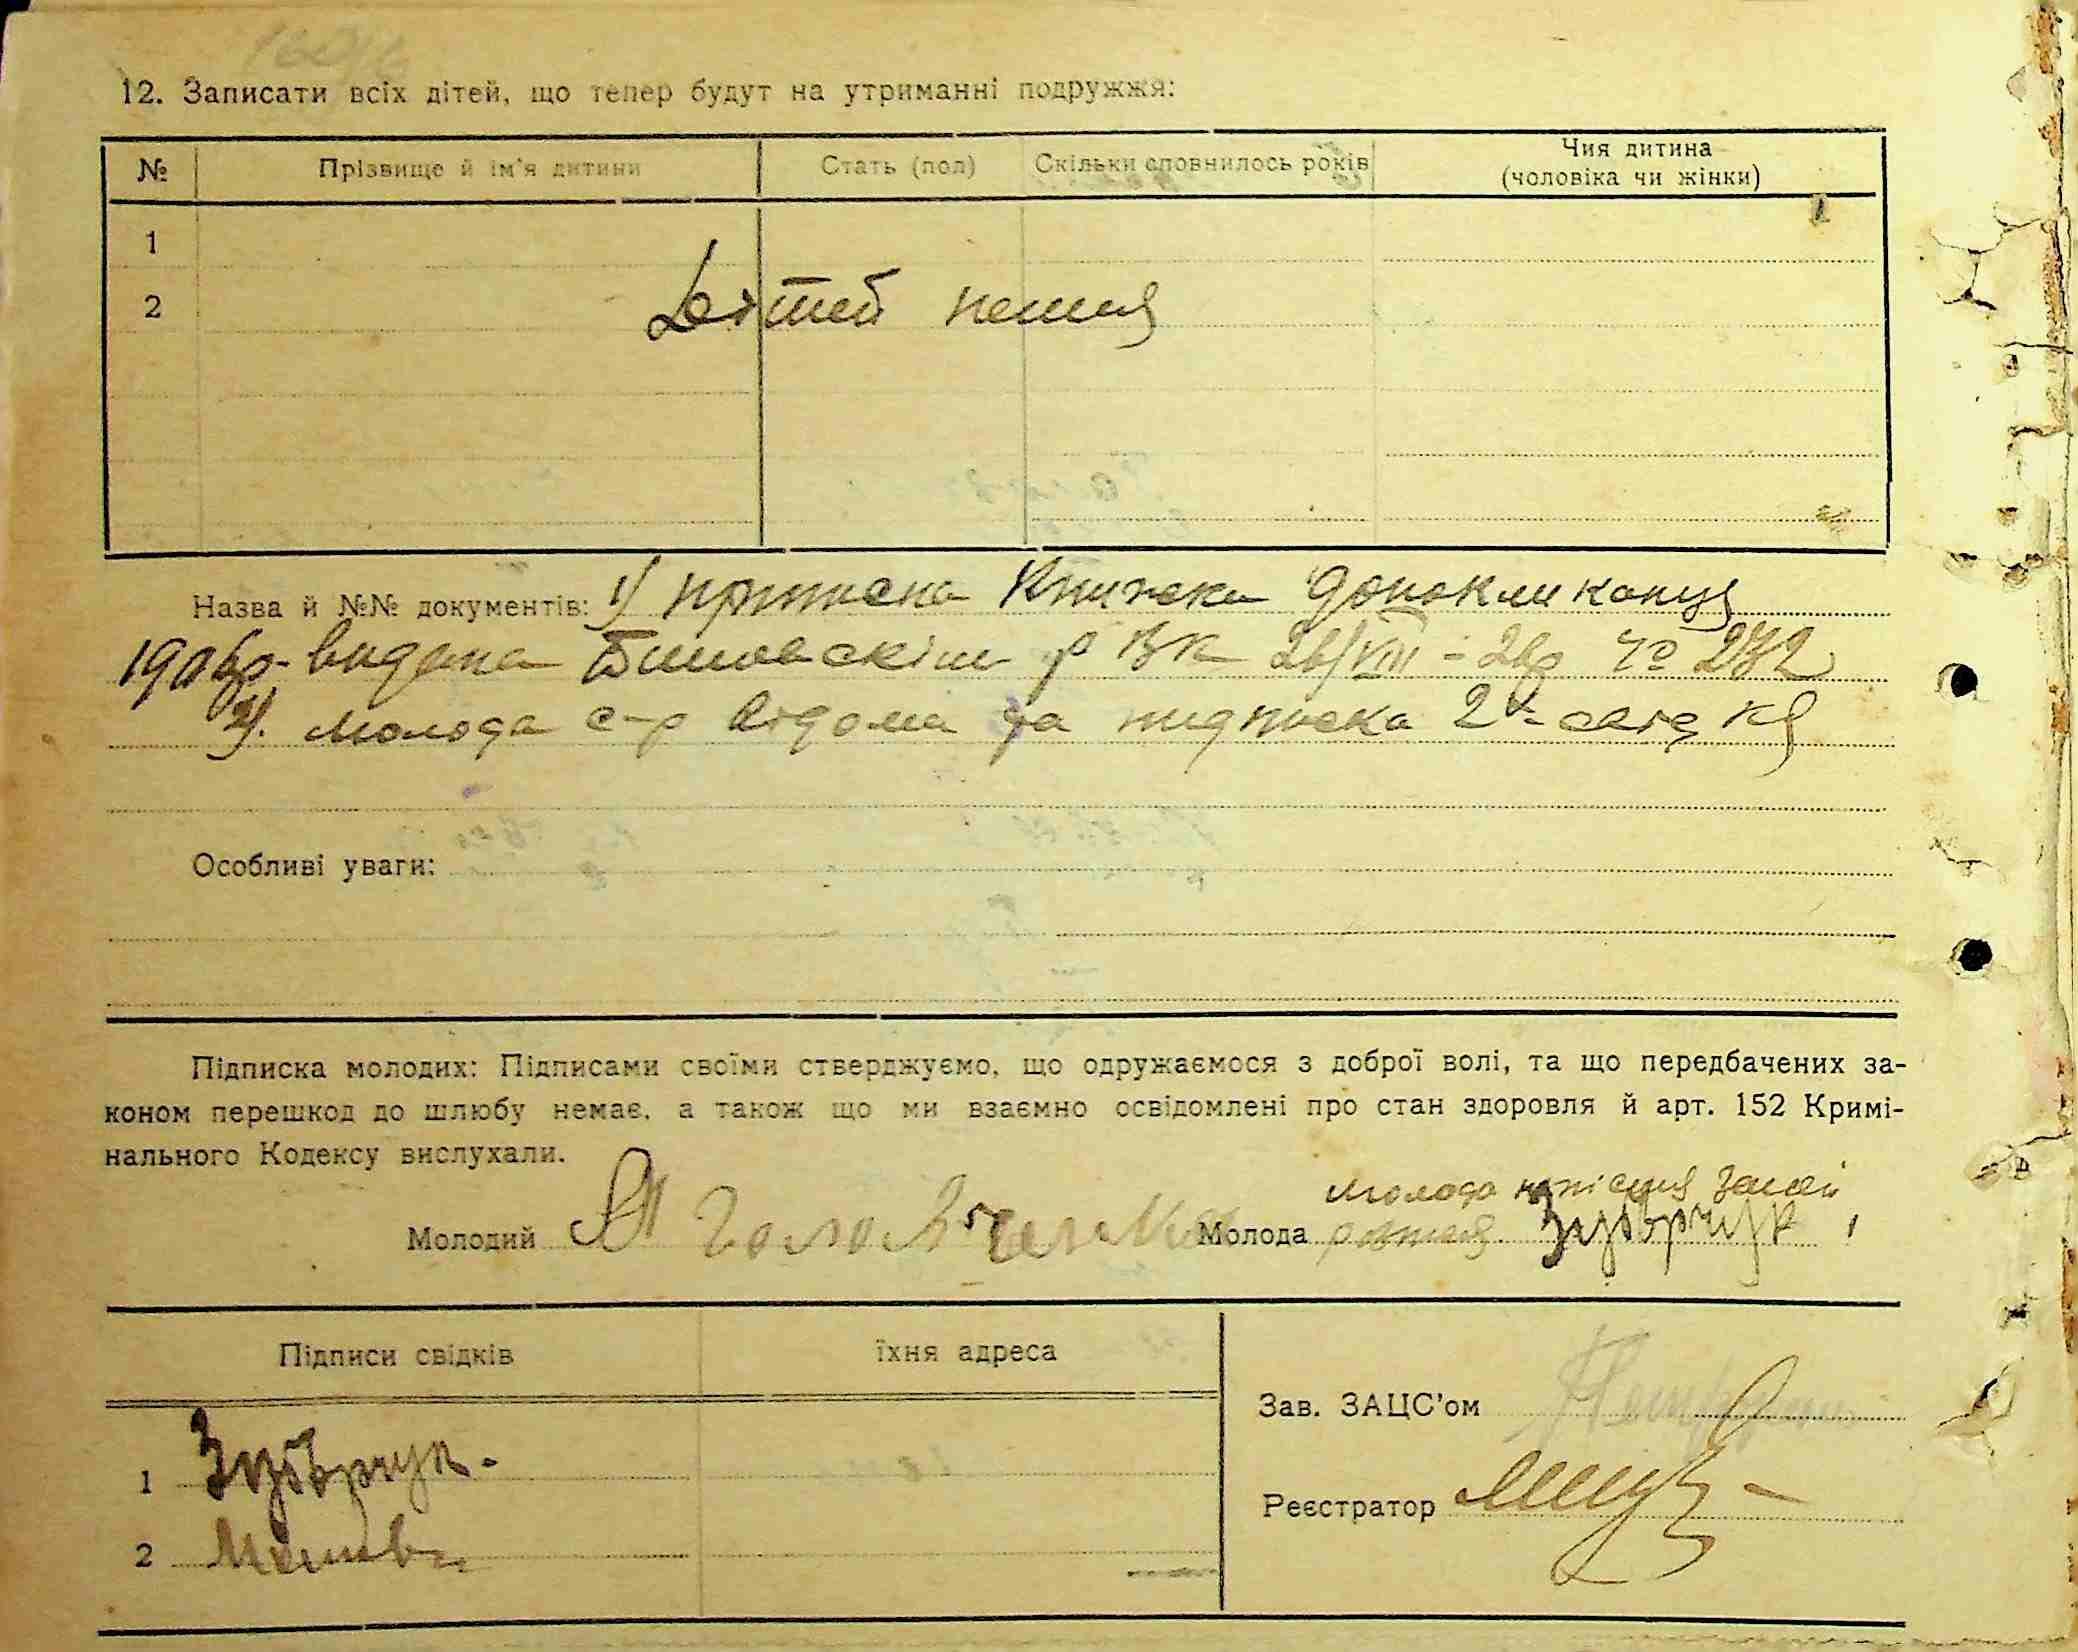 12. Записати всіх дітей, що тепер будут на утриманні подружжя:
№ Прізвище й ім'я дитини Стать (пол) Скільки сповнилось років Чия дитина
(чоловіка чи жінки)
1
2 Дітей немая
Назва й №№ документів: 1) приписна Книжка допокликанця
1906р. видана РВК 26/VIII - 26р чо 272
2). Молода с-р відома та підписка 2х свідкя
Особливі уваги:
Підписка молодих: Підписами своїми стверджуємо, що одружаємося з доброї волі, та що передбачених за-
коном перешкод до шлюбу немає, а також що ми взаємно освідомлені про стан здоровля й арт. 152 Кримі-
нального Кодексу вислухали.
Молода
Молодий Молода Зубрчук
Підписи свідків їхня адреса
Зав. ЗАЦС'ом
1 Зубрчук.
Реєстратор
2